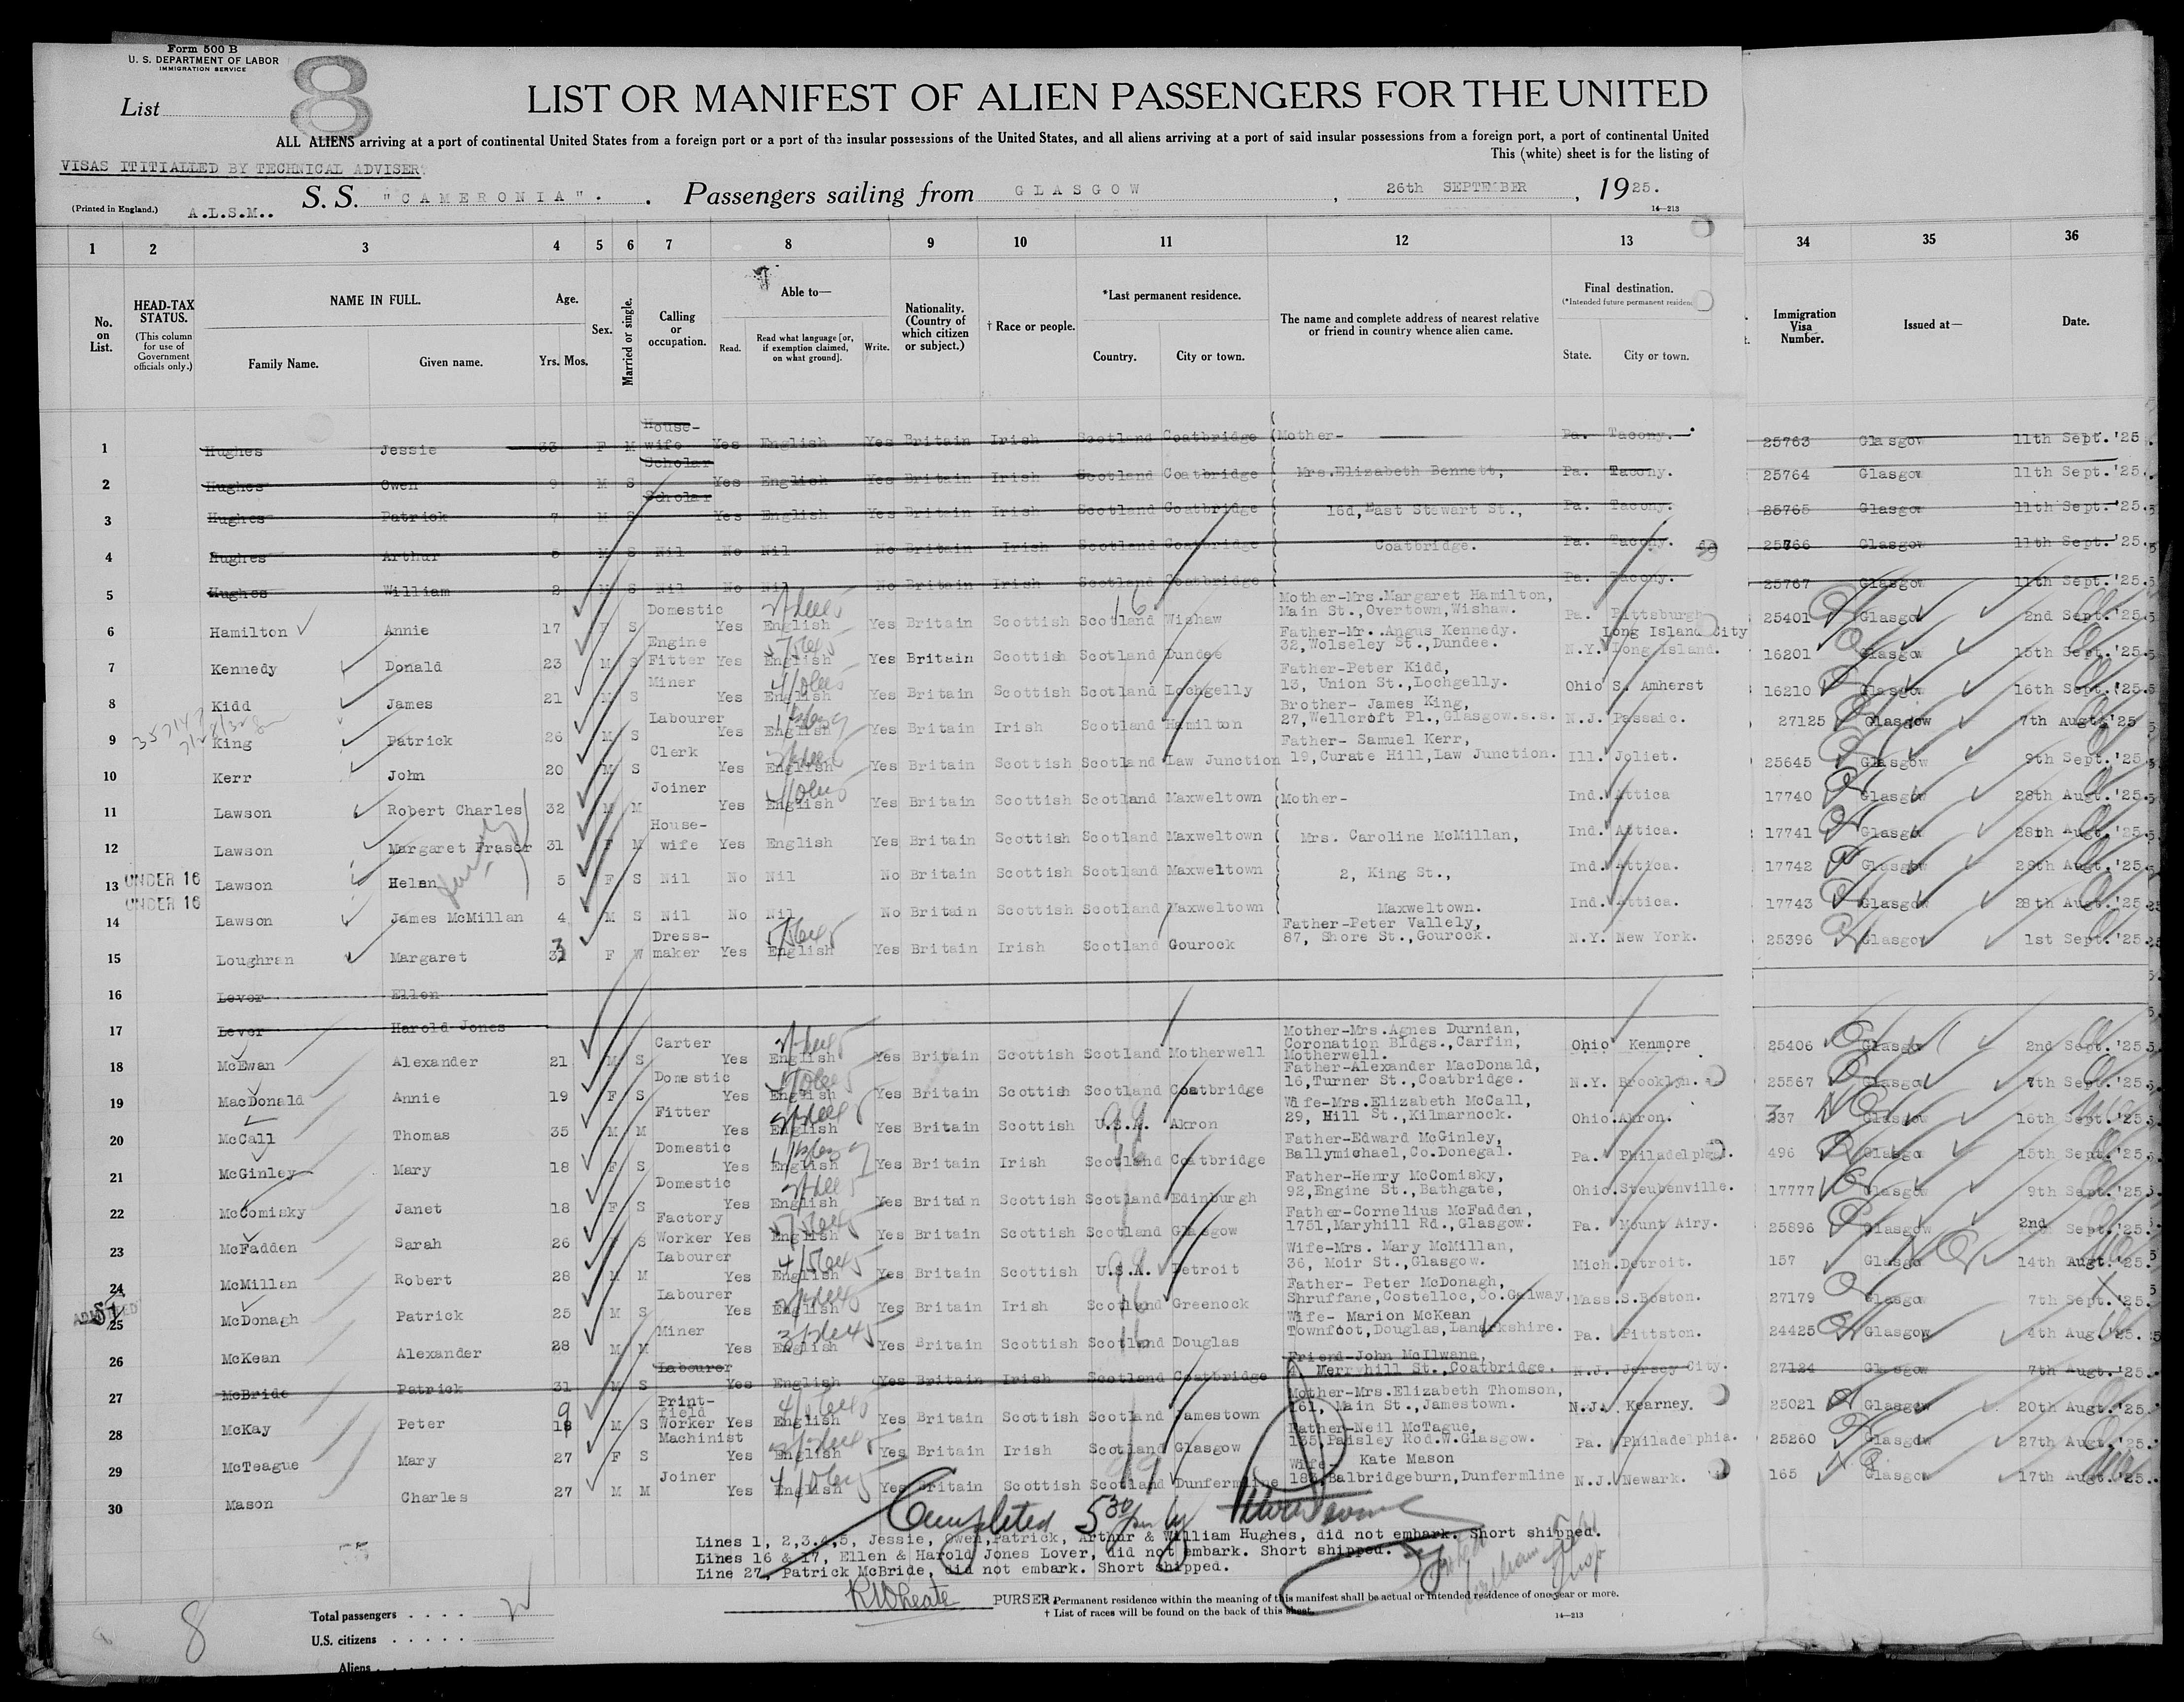 Form 500 B
U. S. DEPARTMENT OF LABOR
IMMIGRATION SERVICE
List 8
LIST OR MANIFEST OF ALIEN PASSENGERS FOR THE UNITED
ALL ALIENS arriving at a port of continental United States from a foreign port or a port of the insular possessions of the United States, and all aliens arriving at a port of said insular possessions from a foreign port, a port of continental United
This (white) sheet is for the listing of
VISAS ITITIALLED BY TECHNICAL ADVISER
S. S. "CAMERONIA". Passengers sailing from GLASGOW, 26th SEPTEMBER, 1925.
(Printed in England.) A.L.S.M.. 14—213
1 2 3 4 5 6 7 8 9 10 11 12 13 34 35 36
No. on List. HEAD-TAX STATUS. (This column for use of Government officials only.) NAME IN FULL. Family Name. Given name. Age. Yrs. Mos. Sex. Married or single. Calling or occupation. Able to— Read. Read what language [or, if exemption claimed, on what ground]. Write. Nationality. (Country of which citizen or subject.) † Race or people. *Last permanent residence. Country. City or town. The name and complete address of nearest relative or friend in country whence alien came. Final destination. (*Intended future permanent residence) State. City or town. Immigration Visa Number. Issued at— Date.
1 Hughes Jessie 33 F M House-wife Yes English Yes Britain Irish Scotland Coatbridge Mother- Pa. Tacony. 25763 Glasgow 11th Sept.'25
2 Hughes Owen 9 M S Scholar Yes English Yes Britain Irish Scotland Coatbridge Mrs.Elizabeth Bennett, Pa. Tacony. 25764 Glasgow 11th Sept.'25.
3 Hughes Patrick 7 M S Scholar Yes English Yes Britain Irish Scotland Coatbridge 16d,East Stewart St., Pa. Tacony. 25765 Glasgow 11th Sept.'25.
4 Hughes Arthur 5 M S Nil No Nil No Britain Irish Scotland Coatbridge Coatbridge. Pa. Tacony. 25766 Glasgow 11th Sept.'25.
5 Hughes William 2 M S Nil No Nil No Britain Irish Scotland Coatbridge Pa. Tacony. 25767 Glasgow 11th Sept.'25
6 Hamilton Annie 17 F S Domestic Yes English Yes Britain Scottish Scotland Wishaw Mother-Mrs.Margaret Hamilton, Main St.,Overtown,Wishaw. Pa. Pittsburgh 25401 Glasgow 2nd Sept.'25
7 Kennedy Donald 23 M S Engine Fitter Yes English Yes Britain Scottish Scotland Dundee Father-Mr. Angus Kennedy. 32,Wolseley St.,Dundee. N.Y. Long Island City Long Island. 16201 Glasgow 15th Sept.'25
8 Kidd James 21 M S Miner Yes English Yes Britain Scottish Scotland Lochgelly Father-Peter Kidd, 13, Union St.,Lochgelly. Ohio S. Amherst 16210 Glasgow 16th Sept.'25
9 King Patrick 26 M S Labourer Yes English Yes Britain Irish Scotland Hamilton Brother- James King, 27,Wellcroft Pl.,Glasgow.s.s. N.J. Passaic. 27125 Glasgow 7th Augt.'25
10 Kerr John 20 M S Clerk Yes English Yes Britain Scottish Scotland Law Junction Father- Samuel Kerr, 19,Curate Hill,Law Junction. Ill. Joliet. 25645 Glasgow 9th Sept.'25
11 Lawson Robert Charles 32 M M Joiner Yes English Yes Britain Scottish Scotland Maxweltown Mother- Ind. Attica 17740 Glasgow 28th Augt.'25
12 Lawson Margaret Fraser 31 F M House-wife Yes English Yes Britain Scottish Scotland Maxweltown Mrs. Caroline McMillan, Ind. Attica. 17741 Glasgow 28th Augt.'25
13 UNDER 16 Lawson Helen 5 F S Nil No Nil No Britain Scottish Scotland Maxweltown 2, King St., Ind. Attica. 17742 Glasgow 28th Augt.'25
14 UNDER 16 Lawson James McMillan 4 M S Nil No Nil No Britain Scottish Scotland Maxweltown Maxweltown. Ind. Attica. 17743 Glasgow 28th Augt.'25
15 Loughran Margaret F W Dress-maker Yes English Yes Britain Irish Scotland Gourock Father-Peter Vallely, 87, Shore St.,Gourock. N.Y. New York. 25396 Glasgow 1st Sept.'25
16 Lever Ellen
17 Lever Harold Jones
18 McEwan Alexander 21 M S Carter Yes English Yes Britain Scottish Scotland Motherwell Mother-Mrs.Agnes Durnian, Coronation Bldgs.,Carfin, Motherwell. Ohio Kenmore 25406 Glasgow 2nd Sept.'25
19 MacDonald Annie 19 F S Domestic Yes English Yes Britain Scottish Scotland Coatbridge Father-Alexander MacDonald, 16,Turner St.,Coatbridge. N.Y. Brooklyn. 25567 Glasgow 7th Sept.'25
20 McCall Thomas 35 M M Fitter Yes English Yes Britain Scottish U.S.A. Akron Wife-Mrs.Elizabeth McCall, 29, Hill St.,Kilmarnock. Ohio. Akron. 337 Glasgow 16th Sept.'25
21 McGinley Mary 18 F S Domestic Yes English Yes Britain Irish Scotland Coatbridge Father-Edward McGinley, Ballymichael,Co.Donegal. Pa. Philadelphia. 496 Glasgow 15th Sept.'25
22 McComisky Janet 18 F S Domestic Yes English Yes Britain Scottish Scotland Edinburgh Father-Henry McComisky, 92,Engine St.,Bathgate, Ohio. Steubenville. 17777 Glasgow 9th Sept.'25
23 McFadden Sarah 26 F S Factory Worker Yes English Yes Britain Scottish Scotland Glasgow Father-Cornelius McFadden, 1751,Maryhill Rd.,Glasgow. Pa. Mount Airy. 25896 Glasgow 2nd Sept.'25
24 McMillan Robert 28 M M Labourer Yes English Yes Britain Scottish U.S.A. Detroit Wife-Mrs. Mary McMillan, 36, Moir St.,Glasgow. Mich. Detroit. 157 Glasgow 14th Augt.'25
25 McDonagh Patrick 25 M S Labourer Yes English Yes Britain Irish Scotland Greenock Father- Peter McDonagh, Shruffane,Costelloc,Co.Galway. Mass. S.Boston. 27179 Glasgow 7th Sept.'25
26 McKean Alexander 28 M M Miner Yes English Yes Britain Scottish Scotland Douglas Wife- Marion McKean Townfoot,Douglas,Lanarkshire. Pa. Pittston. 24425 Glasgow 4th Aug.'25.
27 McBride Patrick 31 M S Labourer Yes English Yes Britain Irish Scotland Coatbridge Friend-John McIlwane, Merryhill St.,Coatbridge. N.J. Jersey City. 27124 Glasgow 7th Augt.'25
28 McKay Peter M S Print-field Worker Yes English Yes Britain Scottish Scotland Jamestown Mother-Mrs.Elizabeth Thomson, 161, Main St.,Jamestown. N.J. Kearney. 25021 Glasgow 20th Augt.'25.
29 McTeague Mary 27 F S Machinist Yes English Yes Britain Irish Scotland Glasgow Father-Neil McTague, 165,Paisley Rod.W.Glasgow. Pa. Philadelphia. 25260 Glasgow 27th Augt.'25.
30 Mason Charles 27 M M Joiner Yes English Yes Britain Scottish Scotland Dunfermline Wife- Kate Mason Balbridgeburn,Dunfermline N.J. Newark. 165 Glasgow 17th Augt.'25.
Completed 5 30 pm by
Lines 1, 2,3.4,5, Jessie, Owen,Patrick, Arthur & William Hughes, did not embark. Short shipped.
Lines 16 & 17, Ellen & Harold Jones Lover, did not embark. Short shipped.
Line 27, Patrick McBride, did not embark. Short shipped.
PURSER.
* Permanent residence within the meaning of this manifest shall be actual or intended residence of one year or more.
† List of races will be found on the back of this sheet.
14—213
8
Total passengers
U.S. citizens
Aliens